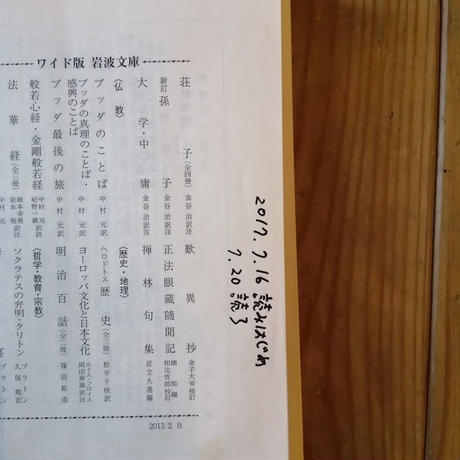 ワイド版 岩波文庫
荘子(全四冊) 金谷治訳注
新訂 孫子 金谷治訳注
大学・中庸 金谷治訳注
〈仏教〉
ブッダのことば 中村元訳
ブッダの真理のことば・
感興のことば 中村元訳
ブッダ最後の旅 中村元訳
般若心経・金剛般若経 中村元 紀野一義訳註
法華経(全三冊) 坂本幸男 岩本裕訳注
歎異抄 金子大栄校訂
正法眼蔵随聞記 懐奘編 和辻哲郎校訂
禅林句集 足立大進編
〈歴史・地理〉
ヘロドトス 歴史(全三冊) 松平千秋訳
ヨーロッパ文化と日本文化 ルイス・フロイス 岡田章雄訳注
明治百話(全二冊) 篠田鉱造
〈哲学・教育・宗教〉
ソクラテスの弁明・クリトン プラトン 久保勉訳
2013.2.B
2017.7.16 読みはじめ
7.20 読了